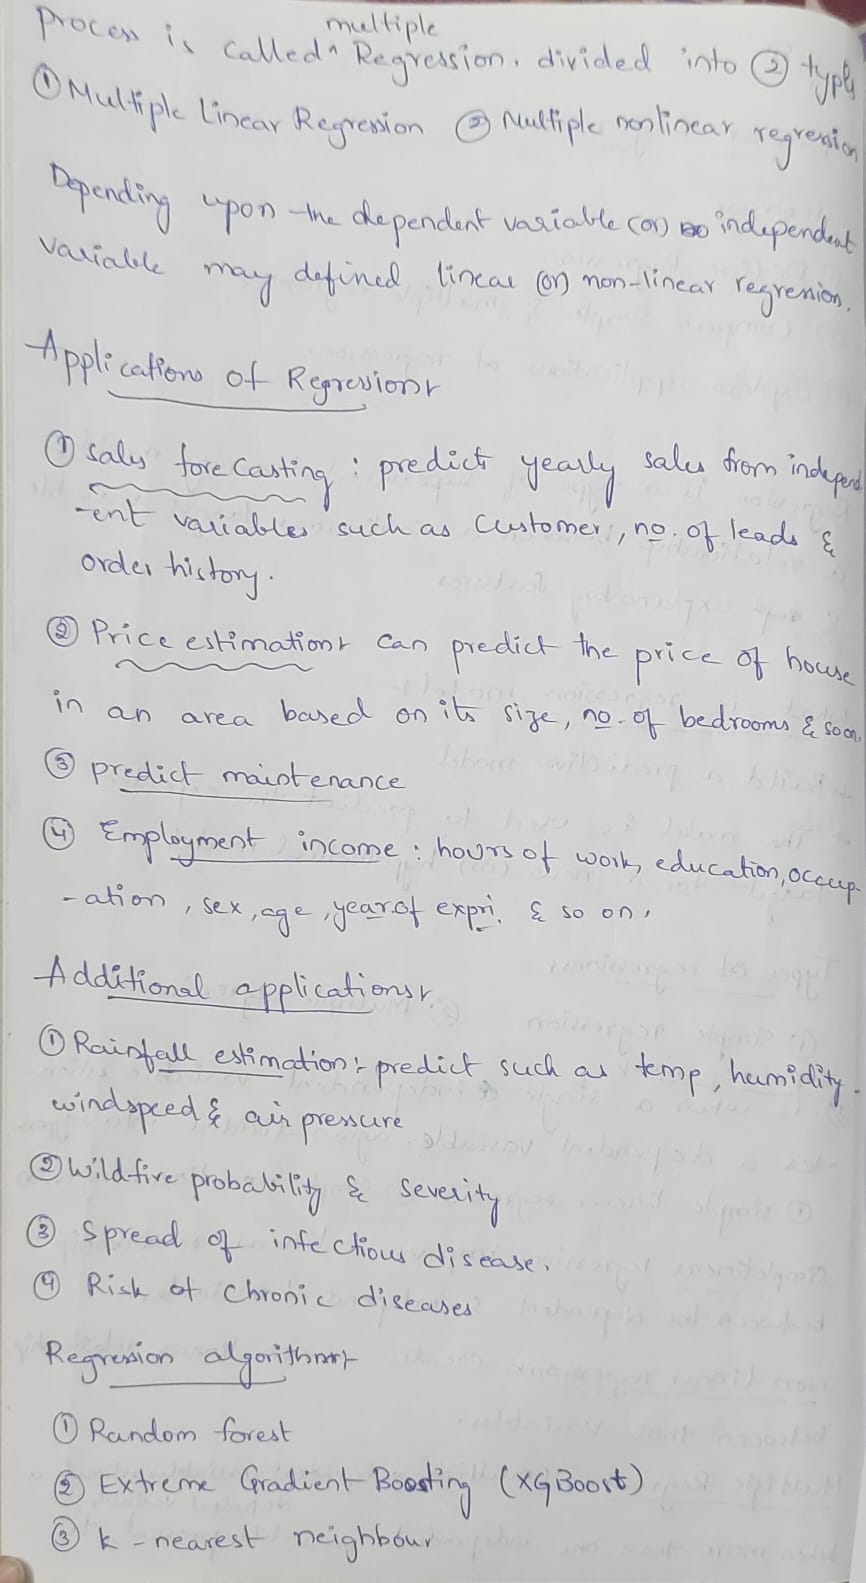 process is called ^ multiple Regression. divided into ② types
① Multiple Linear Regression ② Multiple nonlinear regression
Depending upon the dependent variable (or) independent
variable may defined linear (or) non-linear regression.
Applications of Regression:-
① Sales forecasting : predict yearly sales from independ
-ent variables such as Customer, no. of leads &
order history.
② Price estimation:- can predict the price of house
in an area based on its size, no. of bedrooms & soon.
③ predict maintenance
④ Employment income : hours of work, education, occup
-ation, sex, age, year.of expri. & so on.
Additional applications:-
① Rainfall estimation:- predict such as temp, humidity.
windspeed & air pressure
② Wildfire probability & severity
③ Spread of infectious disease.
④ Risk of Chronic diseases
Regression algorithms:-
① Random forest
② Extreme Gradient Boosting (XGBoost)
③ k - nearest neighbour